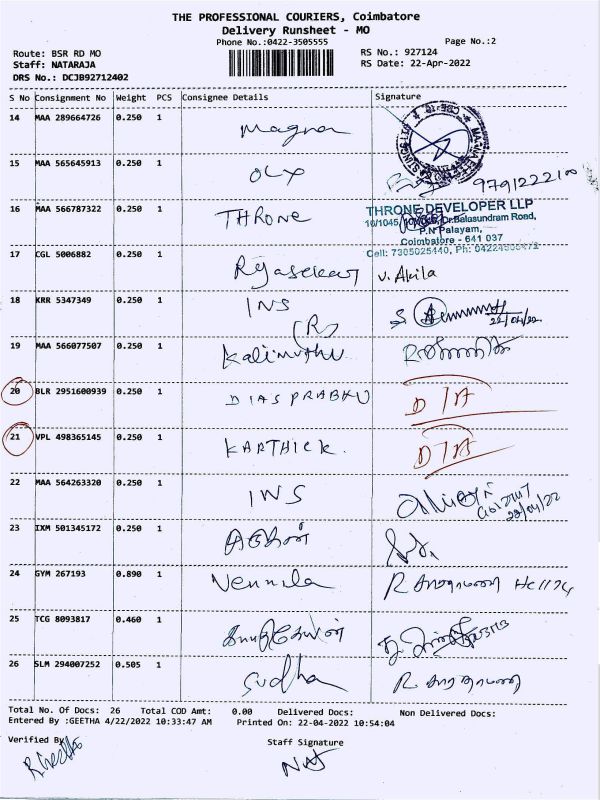 THE PROFESSIONAL COURIERS, Coimbatore
Delivery Runsheet - MO
Phone No.:0422-3505555
Page No.:2
Route: BSR RD MO
RS No.: 927124
Staff: NATARAJA
RS Date: 22-Apr-2022
DRS No.: DCJB92712402
S No Consignment No Weight PCS Consignee Details Signature
14 MAA 289664726 0.250 1 Magna
15 MAA 565645913 0.250 1 OLX
16 MAA 566787322 0.250 1 THRONE
THRONE DEVELOPER LLP
Dr.Balasundram Road,
P.N Palayam,
Coimbatore - 641 037
Cell: 7305025440, Ph:
17 CGL 5006882 0.250 1 V. Akila
18 KRR 5347349 0.250 1 INS
(R)
19 MAA 566077507 0.250 1 Kalimuthu
20 BLR 2951600939 0.250 1 DIAS PRABHU D/A
21 VPL 498365145 0.250 1 KARTHICK. D/A
22 MAA 564263320 0.250 1 INS
23 IXM 501345172 0.250 1
24 GYM 267193 0.890 1 Vennila
25 TCG 8093817 0.460 1
26 SLM 294007252 0.505 1 Sudha
Total No. Of Docs: 26 Total COD Amt: 0.00 Delivered Docs: Non Delivered Docs:
Entered By :GEETHA 4/22/2022 10:33:47 AM Printed On: 22-04-2022 10:54:04
Verified By
Staff Signature